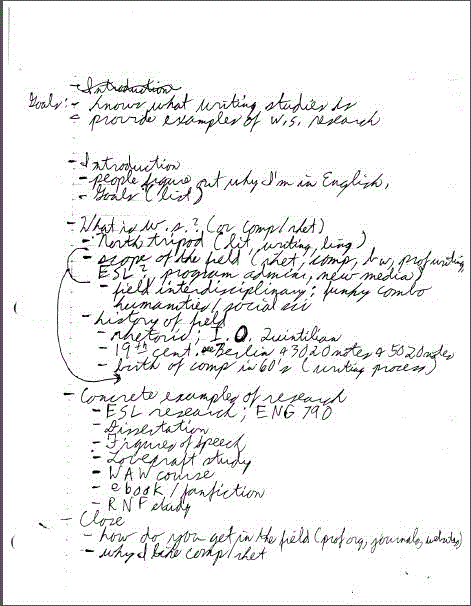 - Introduction
Goals: - knows what writing studies is
- provide examples of W.S. research
- Introduction
- people figure out why I'm in English,
- Goals (list)
- What is w.s.? (or comp/rhet)
- North tripod (lit, writing, ling)
- scope of the field (rhet, comp, b w, prof writing
ESL?, program admin, new media)
- field interdisciplinary; funky combo
humanities/social sci
- history of field
- rhetoric; I.O. Quintilian
- 19th cent. Berlin + 3020 notes + 5020 notes
- birth of comp in 60's (writing process)
- Concrete examples of research
- ESL research; ENG 790
- Dissertation
- Figures of speech
- Lovecraft study
- WAW course
- ebook/fanfiction
- RNF study
- Close
- how do you get in the field (prof org, journals, websites)
- why I like comp/rhet